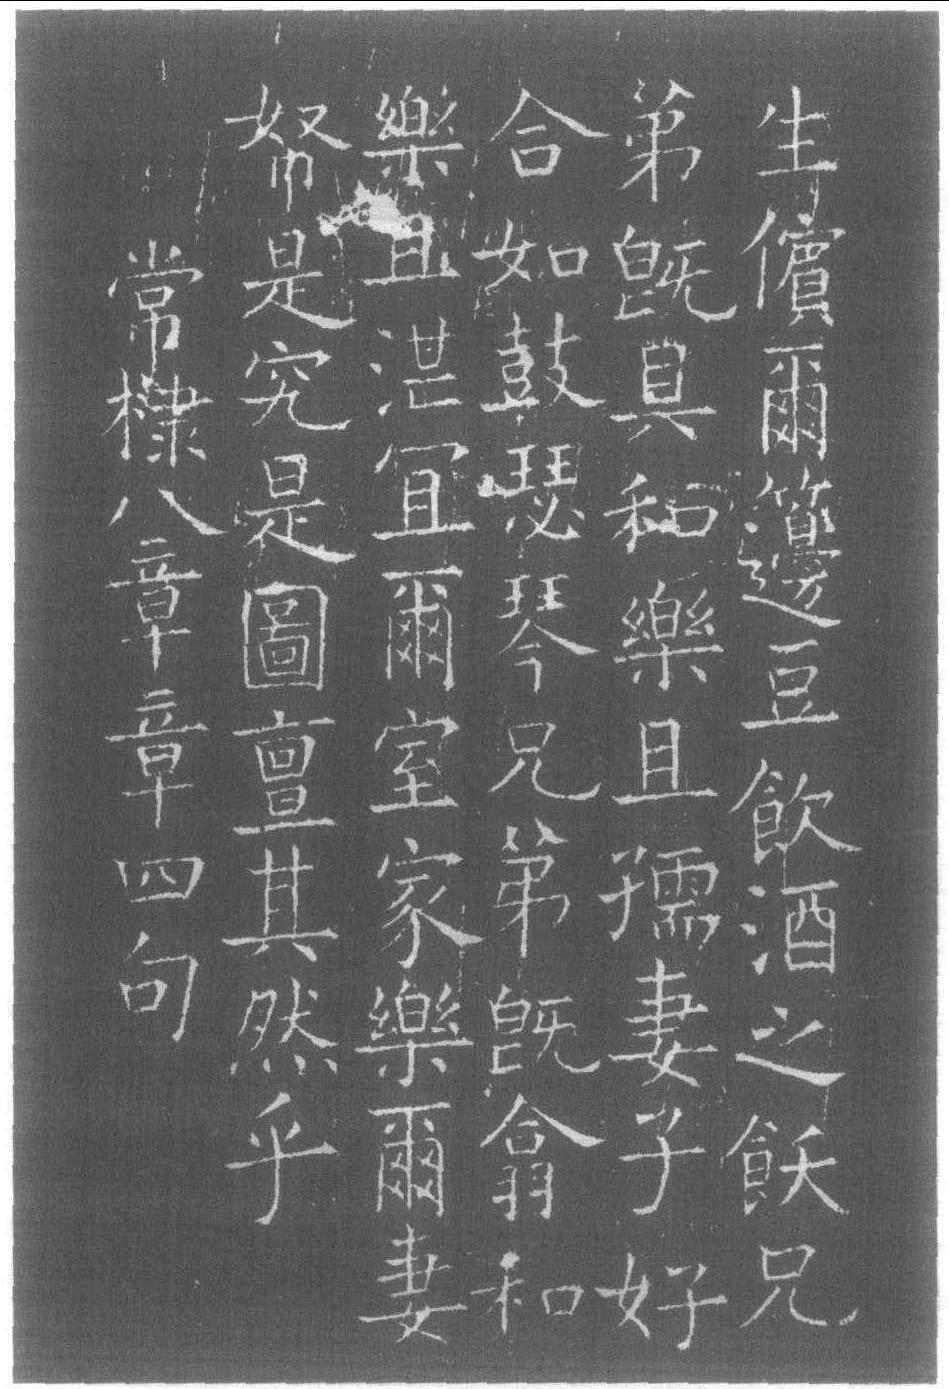 生儐爾籩豆飲酒之飫兄
弟既具和樂且孺妻子好
合如鼓瑟琴兄弟既翕和
樂且湛宜爾室家樂爾妻
帑是究是圖亶其然乎
常棣八章章四句